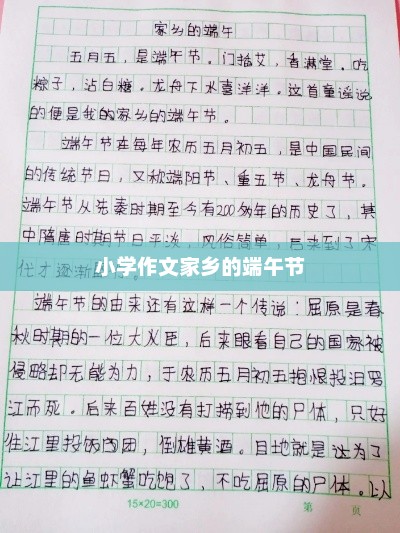 家乡的端午
五月五，是端午节。门插艾，香满堂。吃
粽子，沾白糖。龙舟下水喜洋洋。这首童谣说
的便是我的家乡的端午节。
端午节在每年农历五月初五，是中国民间
的传统节日，又称端阳节、重五节、龙舟节。
端午节从先秦时期至今有200多年的历史了，其
中隋唐时期节日平淡，风俗简单，后来到了宋
代才逐渐
小学作文家乡的端午节
端午节的由来还有这样一个传说：屈原是春
秋时期的一位大义臣，后来眼看自己的国家被
侵略却无能为力，于农历五月初五抱恨投汨罗
江而死。后来百姓没有打捞到他的尸体，只好
往江里投饭团，倒雄黄酒。目地就是为了
让江里的鱼虾蟹吃饱了，不吃屈原的尸体。以
15×20=300 第 页